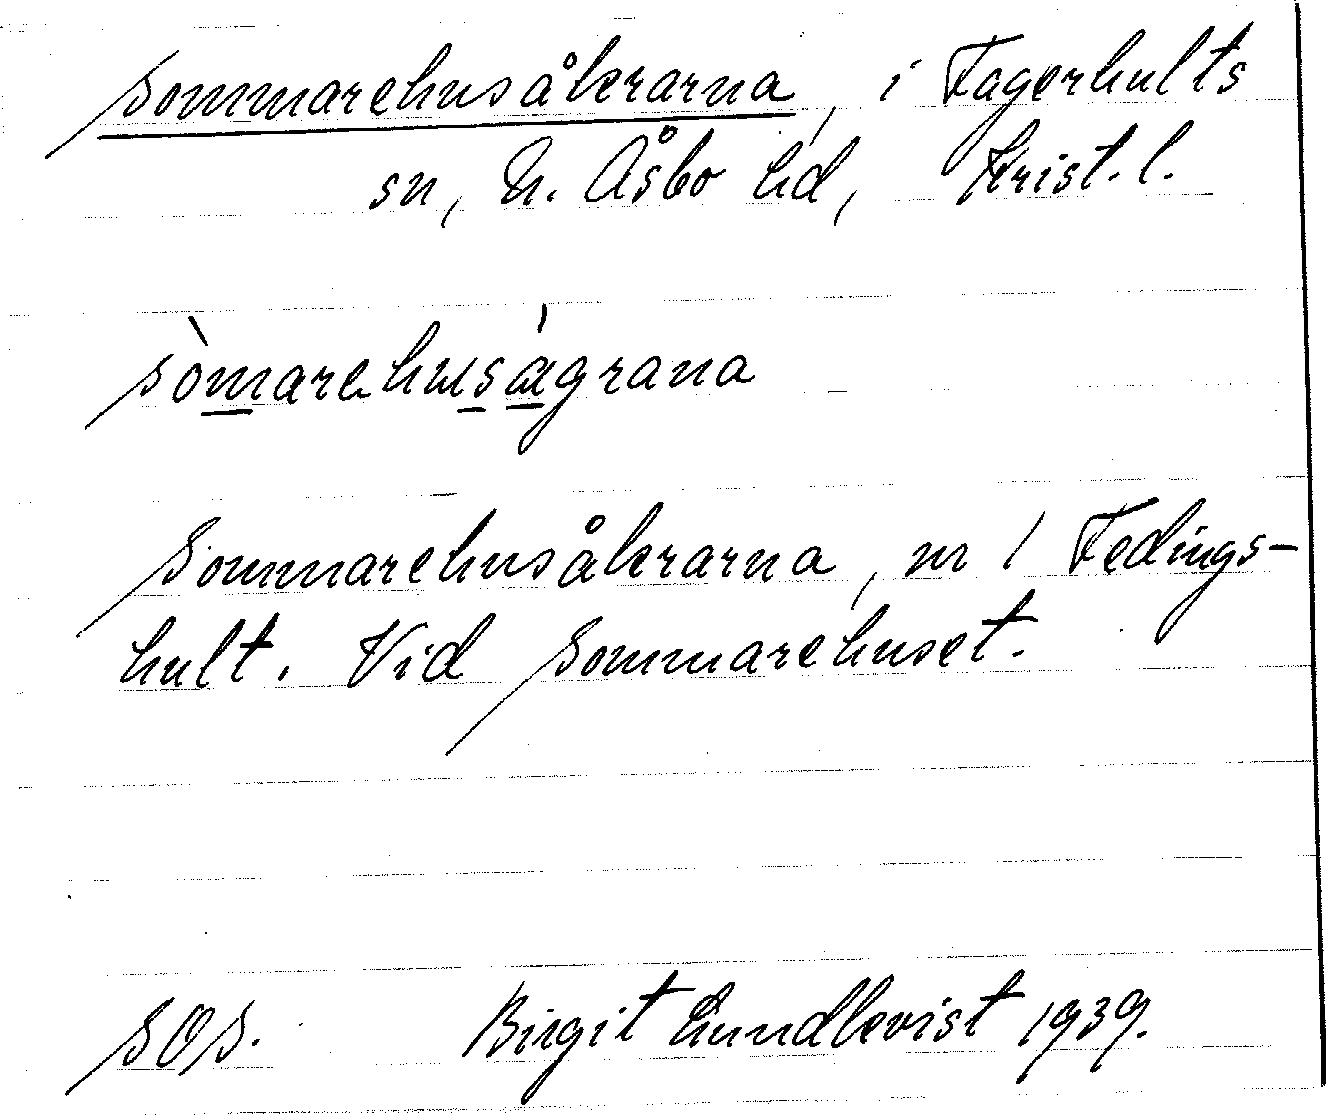 Sommarehusåkrarna, i Fagerhults
sn, N. Åsbo hd, Krist. l.
sòmarehuságrana
Sommarehusåkrarna, nr 1 Fedings-
hult. Vid Sommarehuset.
SOS. Birgit Lundkvist 1939.